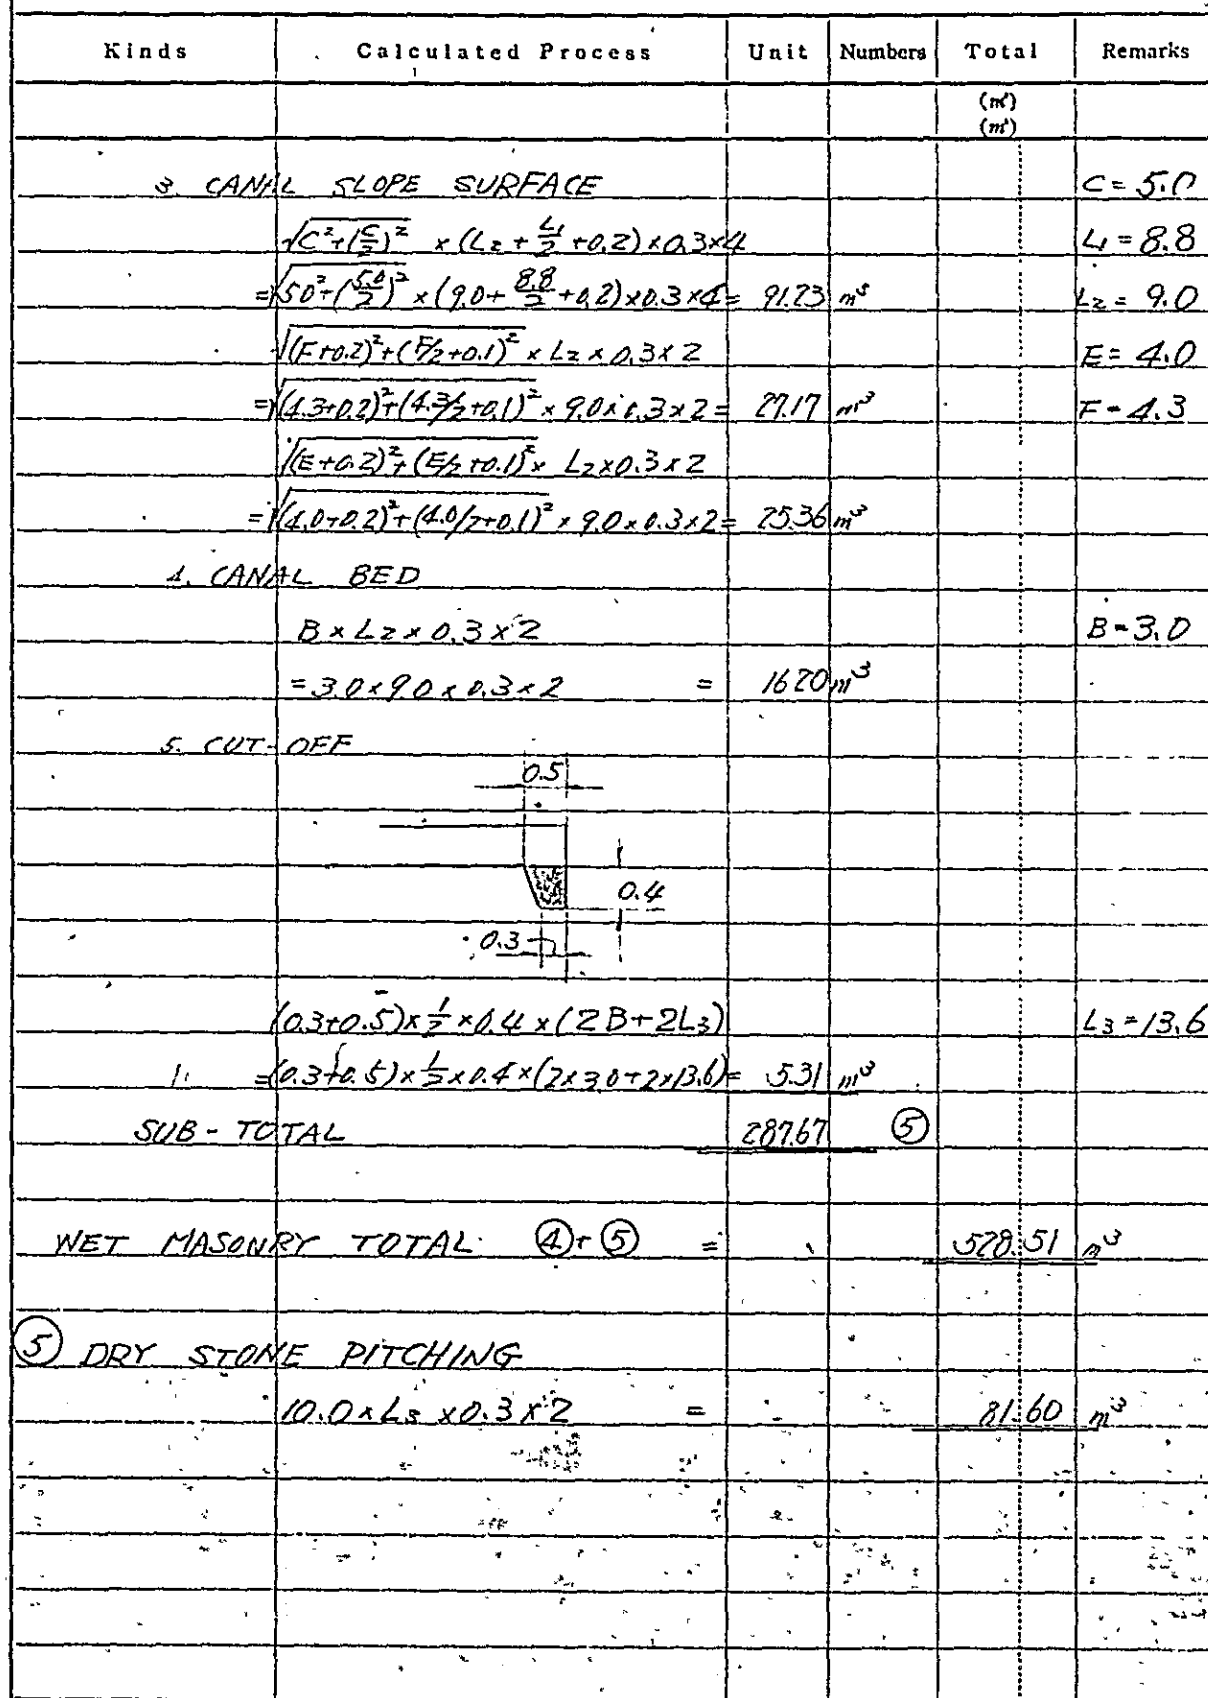 Kinds Calculated Process Unit Numbers Total Remarks
(m³)
(m²)
3. CANAL SLOPE SURFACE C = 5.0
√(C²+(C/2)²) × (L2 + L1/2 + 0.2) × 0.3 × 4 L1 = 8.8
= √(5.0²+(5.0/2)²) × (9.0 + 8.8/2 + 0.2) × 0.3 × 4 = 91.23 m³ L2 = 9.0
√((F+0.2)²+(F/2+0.1)²) × L2 × 0.3 × 2 E = 4.0
= √((4.3+0.2)²+(4.3/2+0.1)²) × 9.0 × 0.3 × 2 = 27.17 m³ F = 4.3
√((E+0.2)²+(E/2+0.1)²) × L2 × 0.3 × 2
= √((4.0+0.2)²+(4.0/2+0.1)²) × 9.0 × 0.3 × 2 = 25.36 m³
4. CANAL BED
B × L2 × 0.3 × 2 B = 3.0
= 3.0 × 9.0 × 0.3 × 2 = 16.20 m³
5. CUT-OFF
0.5
0.4
0.3
(0.3+0.5) × 1/2 × 0.4 × (2B+2L3) L3 = 13.6
= (0.3+0.5) × 1/2 × 0.4 × (2×3.0+2×13.6) = 5.31 m³
SUB-TOTAL 287.67 ⑤
WET MASONRY TOTAL ④+⑤ = 528.51 m³
⑤ DRY STONE PITCHING
10.0 × L3 × 0.3 × 2 = 81.60 m³